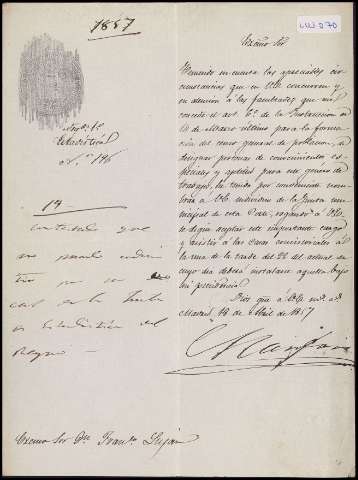 1857
Excmo Sor
Teniendo en cuenta las especiales cir
cunstancias que en V.E. concurren y
en atencion á las facultades que me
concede el art. 6º de la Instruccion de
14 de Marzo último para la forma
cion del censo general de poblacion, de
designar personas de conocimientos es
peciales y aptitud para este genero de
trabajo, he tenido por conveniente nom
brar á V.E. individuo de la Junta
municipal de esta Corte, rogando á V.E.
se digne aceptar este importante cargo
y asistir á las Casas consistoriales á
la una de la tarde del 22 del actual en
cuyo dia deberá instalarse aquella bajo
mi presidencia.
Dios gue á V.E. ms. as.
Madrid 18 de Abril de 1857
Estadistica
Nº 146
14
contestado que
no puede admi
tir por
en la Junta
de Estadistica del
Reyno
Excmo Sor Dn Franco Lujan